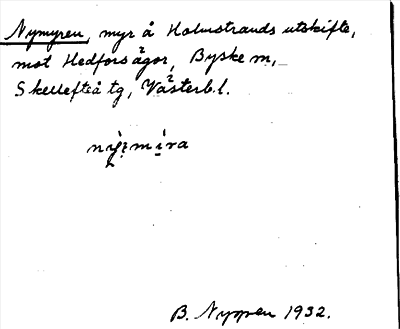 Nymyren, myr å Holmstrands utskifte,
mot Hedforsågor, Byske m,
Skellefteå tg, Västerb.l.
B. Nyppen 1932.